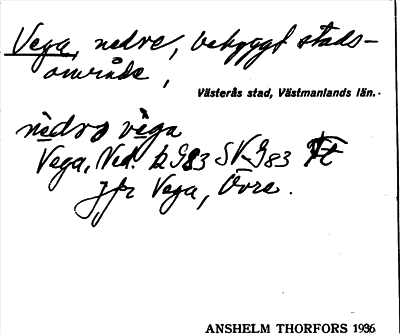 Vega, nedre, bebyggt stads-
område,
Västerås stad, Västmanlands län.
nèdrə vèga
Vega, Ned. G83 SV G83
Jfr Vega, Övre.
ANSHELM THORFORS 1936